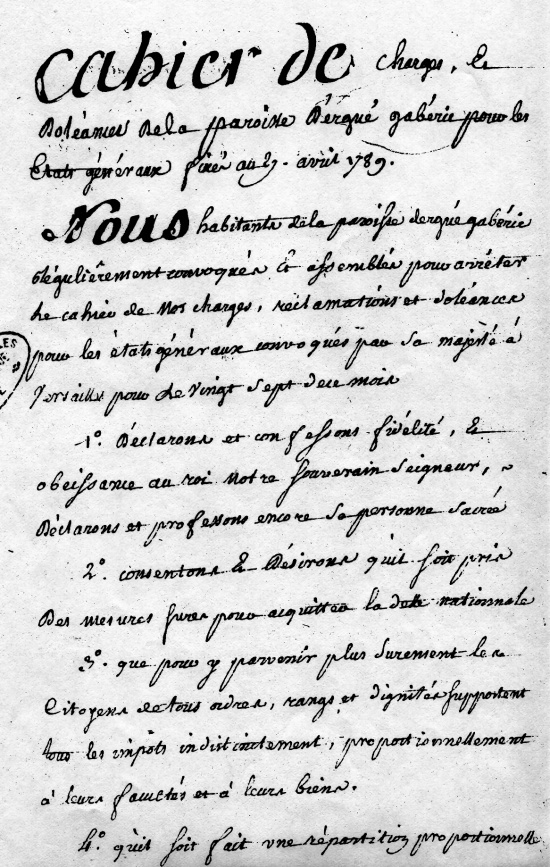 Cahier de charges, &
Doléances de la paroisse D'ergué gabéric pour les
Etats généraux fixés au 27. avril 1789.
Nous habitants de la paroisse dergué gabéric
régulièrement convoqués & assemblés pour arrêter
le cahier de nos charges, réclamations et doléances
pour les états généraux convoqués par sa majesté à
Versailles pour le vingt sept de ce mois
1°. Déclarons et confessons fidélité, &
obeissance au roi notre souverain seigneur,
Déclarons et professons encore sa personne sacrée
2°. consentons & Désirons qu'il soit pris
Des mesures sures pour acquitter la dette nationnale
3°. que pour y parvenir plus surement les
citoyens de tous ordres, rangs et dignités supportent
tous les impôts indistinctement, proportionnellement
à leurs facultés et à leurs biens.
4°. qu'il soit fait une répartition proportionnelle
LES